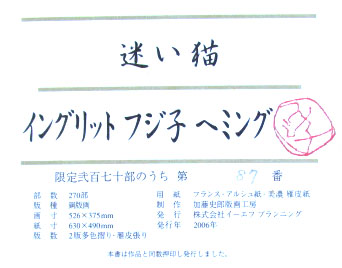 迷い猫
イングリット フジ子 ヘミング
限定弐百七十部のうち 第 87 番
部 数 270部
版 種 銅版画
画 寸 526×375mm
紙 寸 630×490mm
版 数 2版多色摺り・雁皮張り
用 紙 フランス・アルシュ紙・美濃 雁皮紙
制 作 加藤史郎版画工房
発 行 株式会社イーエフ プランニング
発行年 2006年
本書は作品と同数押印し発行しました。